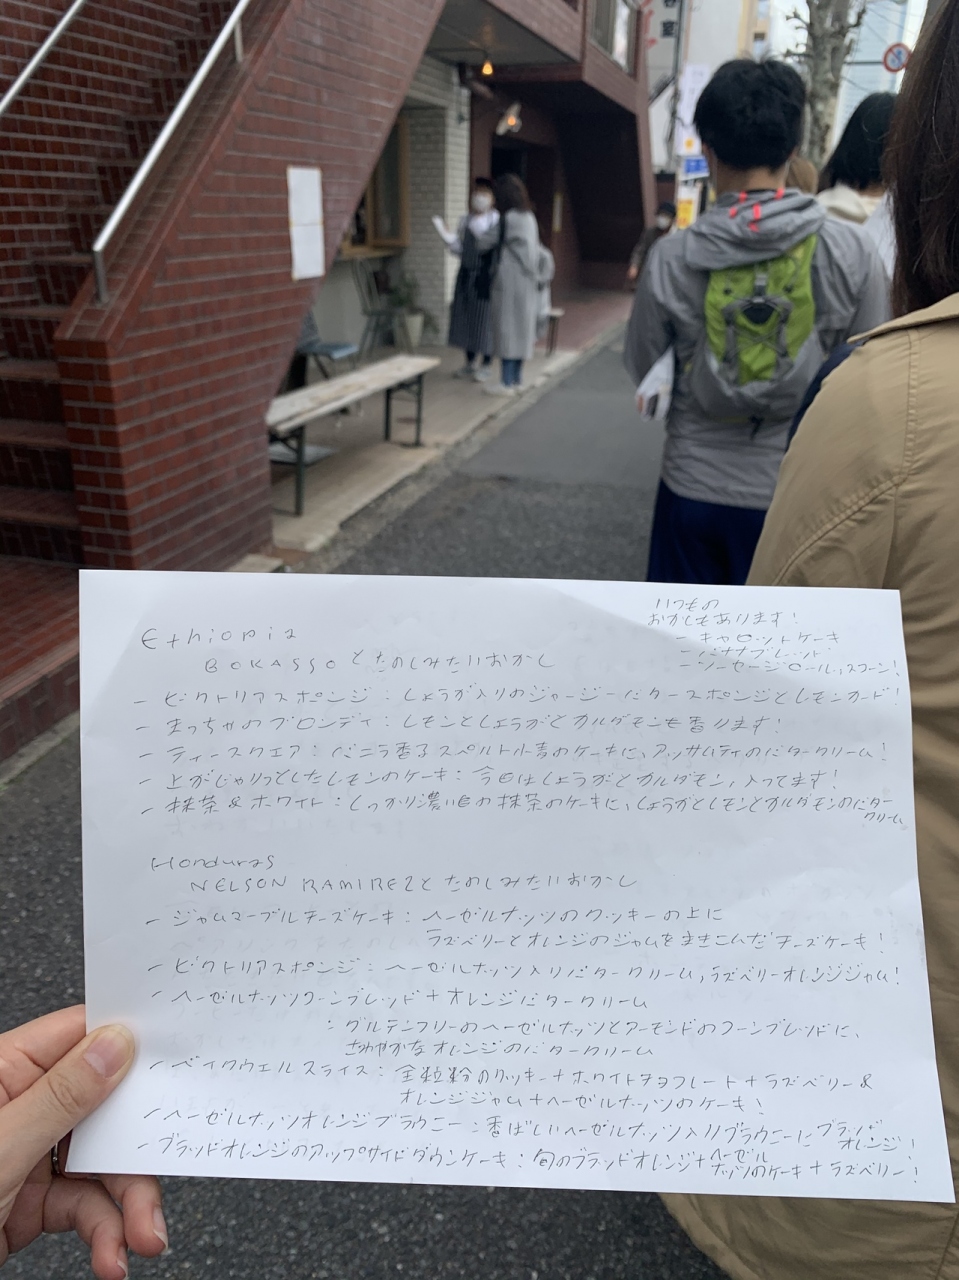 いつもの
おかしもあります!
- キャロットケーキ
- バナナブレッド
- ソーセージロール,スコーン!
Ethiopia
BOKASSOとたのしみたいおかし
- ビクトリアスポンジ:しょうが入りのジャージーバタースポンジとレモンカード!
- まっちゃのブロンディ:レモンとしょうがとカルダモンも香ります!
- ティースクエア:バニラ香るスペルト小麦のケーキに、アッサムティのバタークリーム!
- 上がじゃりっとしたレモンのケーキ:今日はしょうがとカルダモン,入ってます!
- 抹茶&ホワイト:しっかり濃い目の抹茶のケーキに、しょうがとレモンとカルダモンのバター
クリーム
Honduras
NELSON RAMIREZとたのしみたいおかし
- ジャムマーブルチーズケーキ:ヘーゼルナッツのクッキーの上に
ラズベリーとオレンジのジャムをまきこんだチーズケーキ!
- ビクトリアスポンジ:ヘーゼルナッツ入りバタークリーム,ラズベリーオレンジジャム!
- ヘーゼルナッツコーンブレッド+オレンジバタークリーム
:グルテンフリーのヘーゼルナッツとアーモンドのコーンブレッドに、
さわやかなオレンジのバタークリーム
- ベイクウェルスライス:全粒粉のクッキー+ホワイトチョコレート+ラズベリー&
オレンジジャム+ヘーゼルナッツのケーキ!
- ヘーゼルナッツオレンジブラウニー:香ばしいヘーゼルナッツ入りブラウニーにブラッド
オレンジ!
- ブラッドオレンジのアップサイドダウンケーキ:旬のブラッドオレンジ+ヘーゼル
ナッツのケーキ+ラズベリー!